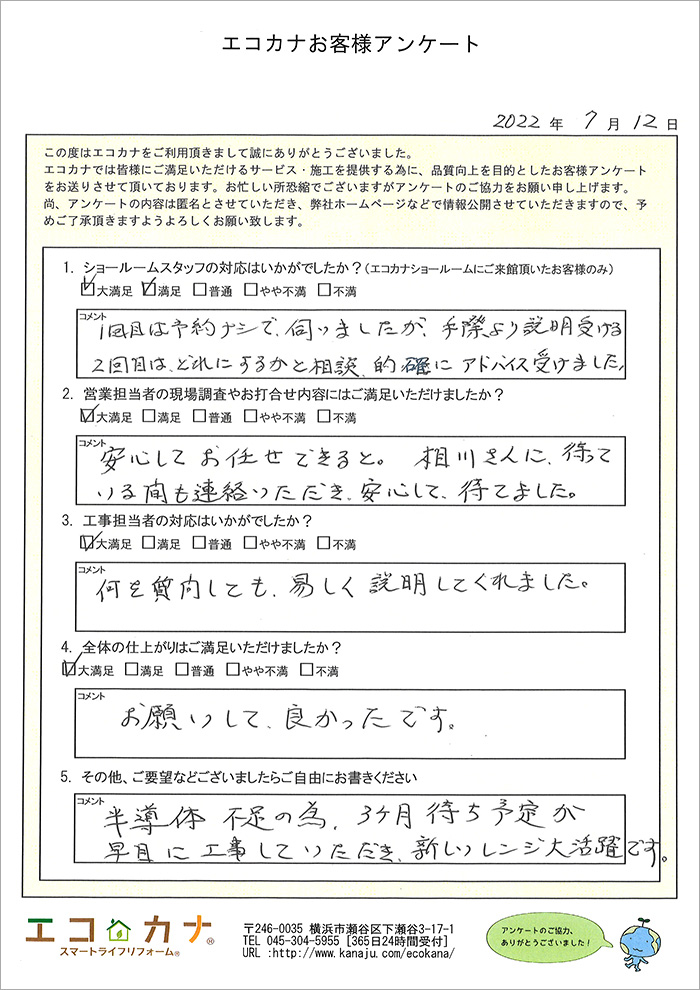 エコカナお客様アンケート
2022 年 7 月 12 日
この度はエコカナをご利用頂きまして誠にありがとうございました。
エコカナでは皆様にご満足いただけるサービス・施工を提供する為に、品質向上を目的としたお客様アンケート
をお送りさせて頂いております。お忙しい所恐縮でございますがアンケートのご協力をお願い申し上げます。
尚、アンケートの内容は匿名とさせていただき、弊社ホームページなどで情報公開させていただきますので、予
めご了承頂きますようよろしくお願い致します。
1. ショールームスタッフの対応はいかがでしたか？(エコカナショールームにご来館頂いたお客様のみ)
☑大満足 ☑満足 □普通 □やや不満 □不満
コメント
1回目は予約ナシで、伺いましたが、手際より説明受ける
2回目は、どれにするかと相談、的確にアドバイス受けました。
2. 営業担当者の現場調査やお打合せ内容にはご満足いただけましたか？
☑大満足 □満足 □普通 □やや不満 □不満
コメント
安心してお任せできると。 相川さんに、待って
いる間も連絡いただき、安心して、待てました。
3. 工事担当者の対応はいかがでしたか？
☑大満足 □満足 □普通 □やや不満 □不満
コメント
何を質問しても、易しく説明してくれました。
4. 全体の仕上がりはご満足いただけましたか？
☑大満足 □満足 □普通 □やや不満 □不満
コメント
お願いして、良かったです。
5. その他、ご要望などございましたらご自由にお書きください
コメント
半導体不足の為、3ケ月待ち予定が
早目に工事していただき、新しいレンジ大活躍です。
エコカナ®
スマートライフリフォーム®
〒246-0035 横浜市瀬谷区下瀬谷3-17-1
TEL 045-304-5955 [365日24時間受付]
URL :http://www.kanaju.com/ecokana/
アンケートのご協力、
ありがとうございました！